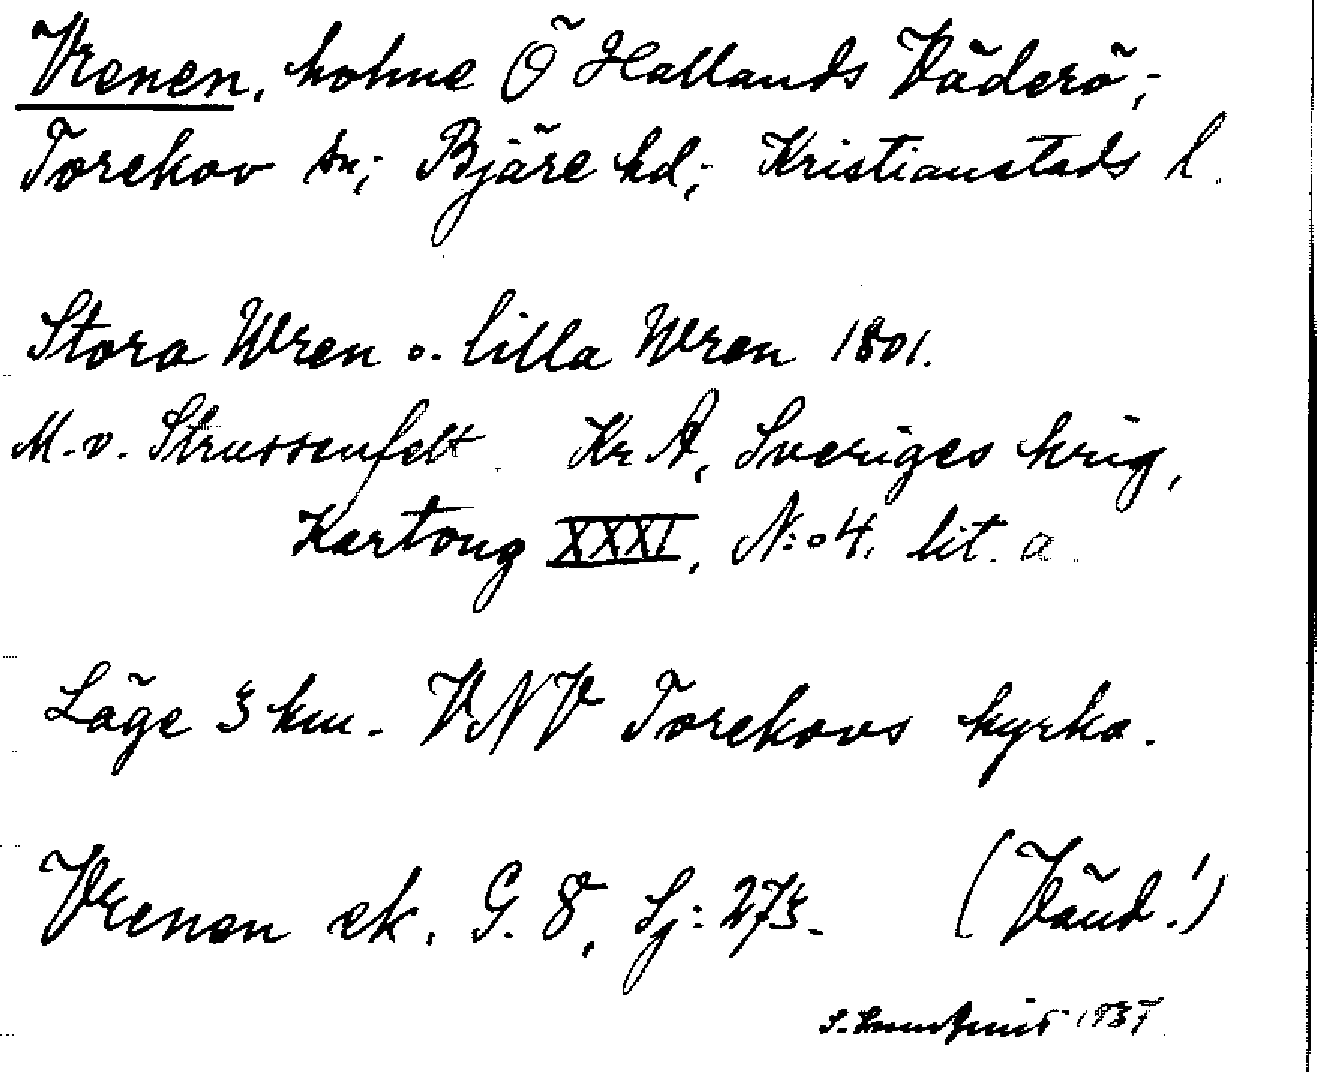 Vrenen, holme Ö Hallands Väderö;
Torekov sn; Bjäre hd; Kristianstads l.
Stora Wren o. lilla Wren 1801.
M. v. Strussenfelt. Kr A, Sveriges krig,
Kartong XXXI, N:o 4, lit. a.
Läge 3 km. VNV Torekovs kyrka.
Vrenen ek. G. 8, Sj: 273. (Vänd!)